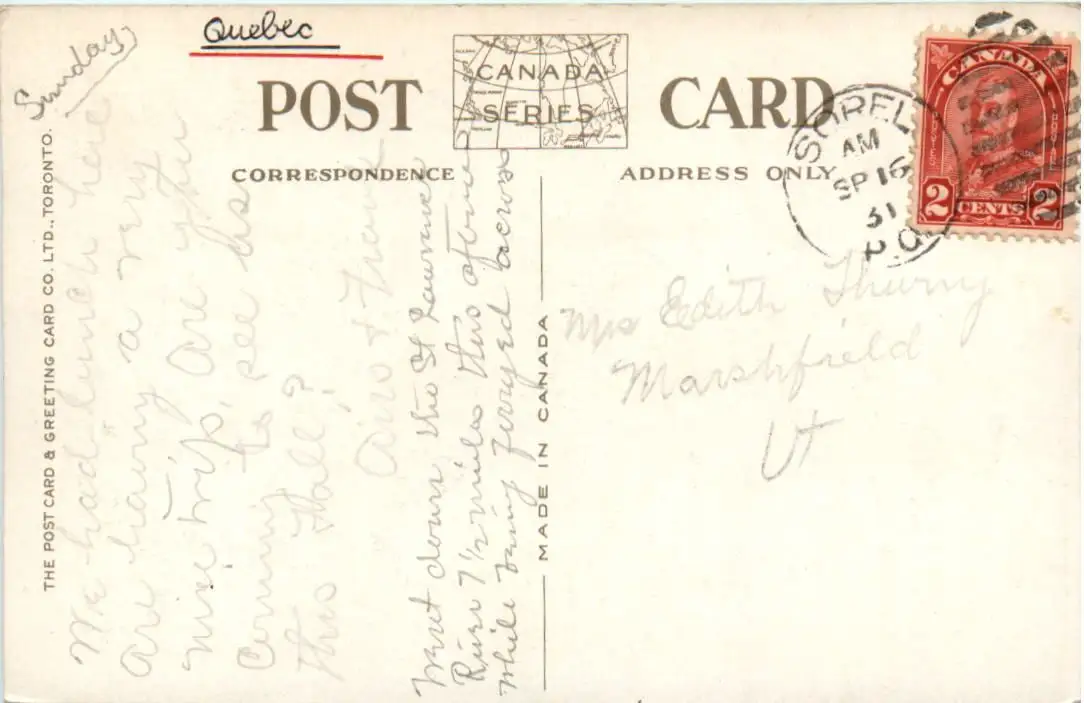 Quebec
Sunday
POST CARD
CANADA
SERIES
CORRESPONDENCE
ADDRESS ONLY
THE POST CARD & GREETING CARD CO. LTD., TORONTO.
MADE IN CANADA
SOREL
AM
SP 16
31
P.Q.
CANADA
2 CENTS 2
We had lunch here
are having a very
nice trip, are you
coming to see us
this Fall?
&
Went down the St Lawrence
River 7 1/2 miles this afternoon
while being ferryed across
Mrs Edith
Marshfield
Vt